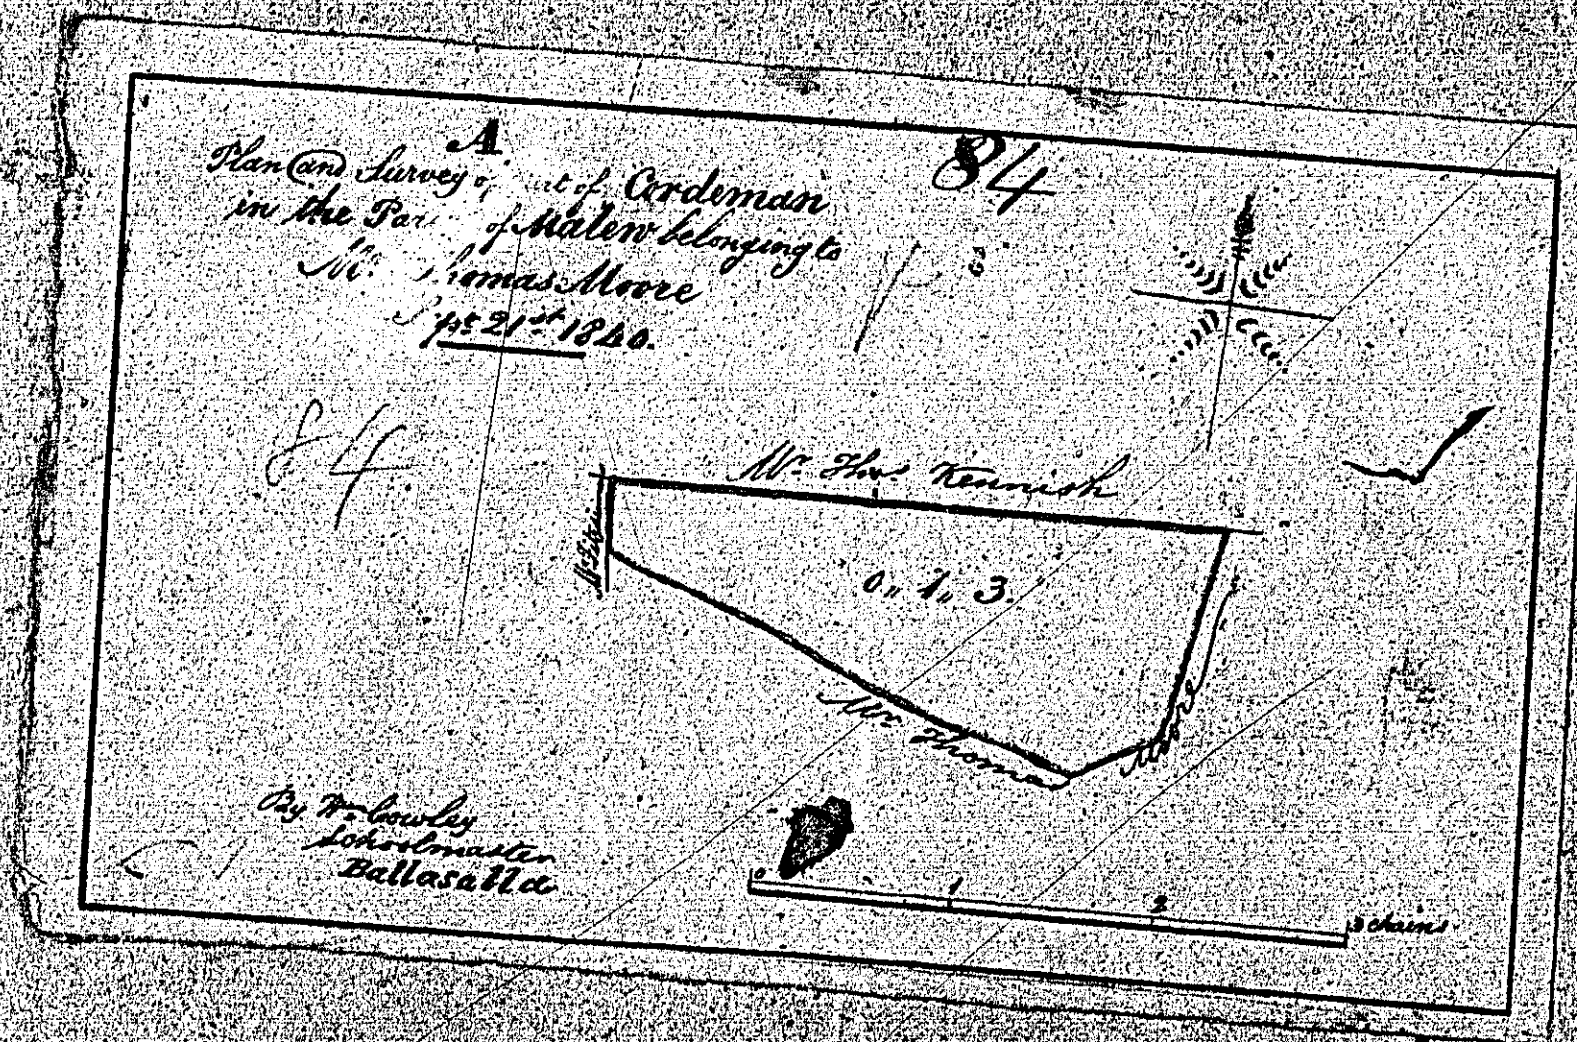 A
84
Plan and Survey of of Cordeman
in the of Malew belonging to
Mr Thomas Moore
21st 1840.
84
Mr Thos. Kennish
0,, 1,, 3.
Mr Thomas
Moore
By Wm Cowley
Schoolmaster
Ballasalla
0 1 2 3 chains